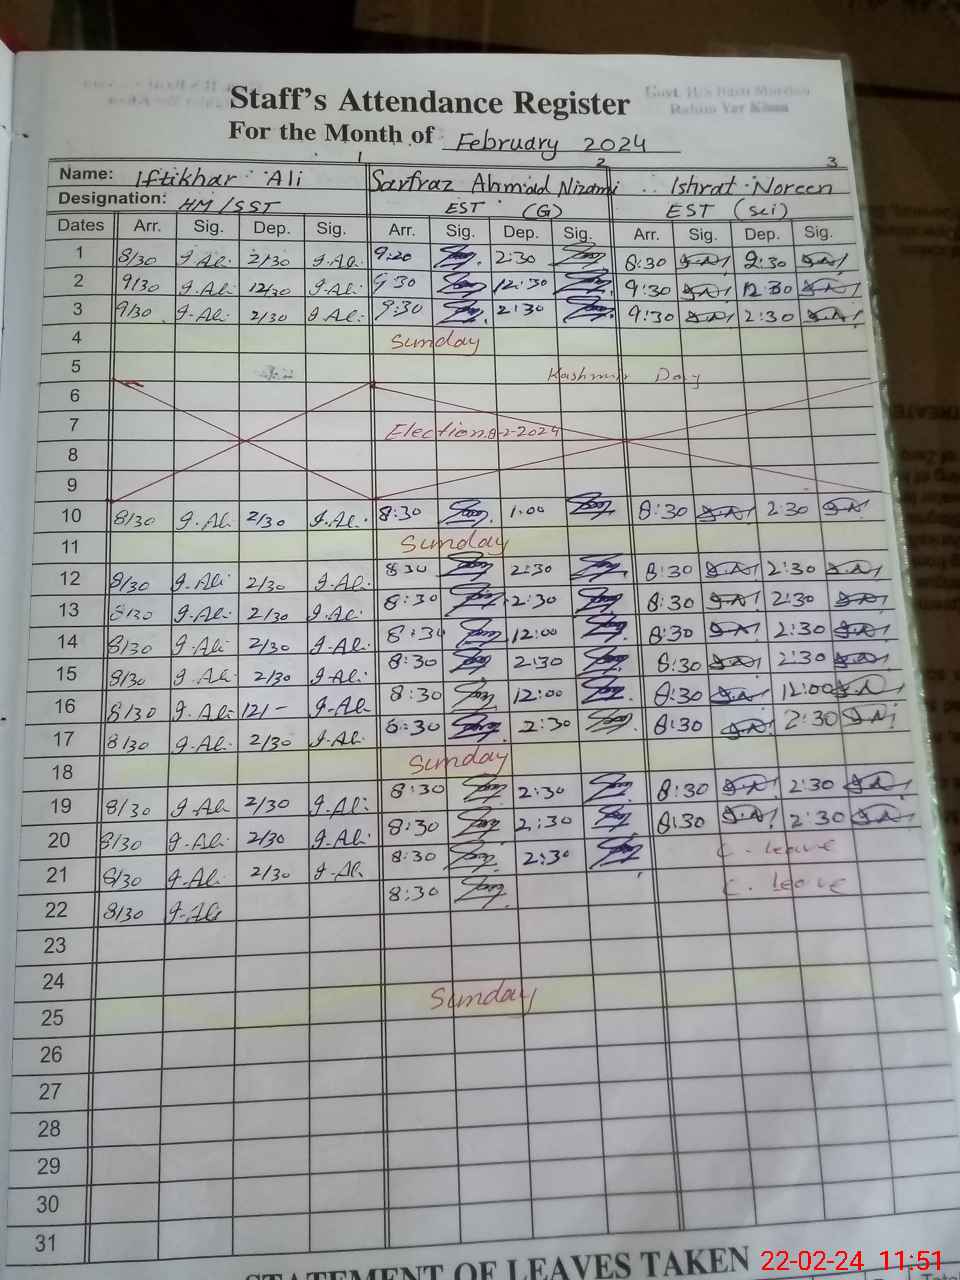 Staff's Attendance Register
For the Month of February 2024
1 2 3
Name: Iftikhar Ali Sarfraz Ahmad Nizami Ishrat Noreen
Designation: HM/SST EST (G) EST (sci)
Dates Arr. Sig. Dep. Sig. Arr. Sig. Dep. Sig. Arr. Sig. Dep. Sig.
1 8/30 I.Ali 2/30 I.Ali 9:20 2:30 8:30 2:30
2 9/30 I.Ali 12/30 I.Ali 9:30 12:30 9:30 12:30
3 9/30 I.Ali 2/30 I.Ali 9:30 2:30 9:30 2:30
4 Sunday
5 Kashmir Day
6
7 Election 8-2-2024
8
9
10 8/30 I.Ali 2/30 I.Ali 8:30 1:00 8:30 2:30
11 Sunday
12 8/30 I.Ali 2/30 I.Ali 8:30 2:30 8:30 2:30
13 8/30 I.Ali 2/30 I.Ali 8:30 2:30 8:30 2:30
14 8/30 I.Ali 2/30 I.Ali 8:30 12:00 8:30 2:30
15 8/30 I.Ali 2/30 I.Ali 8:30 2:30 8:30 2:30
16 8/30 I.Ali 12/- I.Ali 8:30 12:00 8:30 12:00
17 8/30 I.Ali 2/30 I.Ali 8:30 2:30 8:30 2:30
18 Sunday
19 8/30 I.Ali 2/30 I.Ali 8:30 2:30 8:30 2:30
20 8/30 I.Ali 2/30 I.Ali 8:30 2:30 8:30 2:30
21 8/30 I.Ali 2/30 I.Ali 8:30 2:30 C. leave
22 8/30 I.Ali 8:30 C. leave
23
24
25 Sunday
26
27
28
29
30
31
STATEMENT OF LEAVES TAKEN
22-02-24 11:51